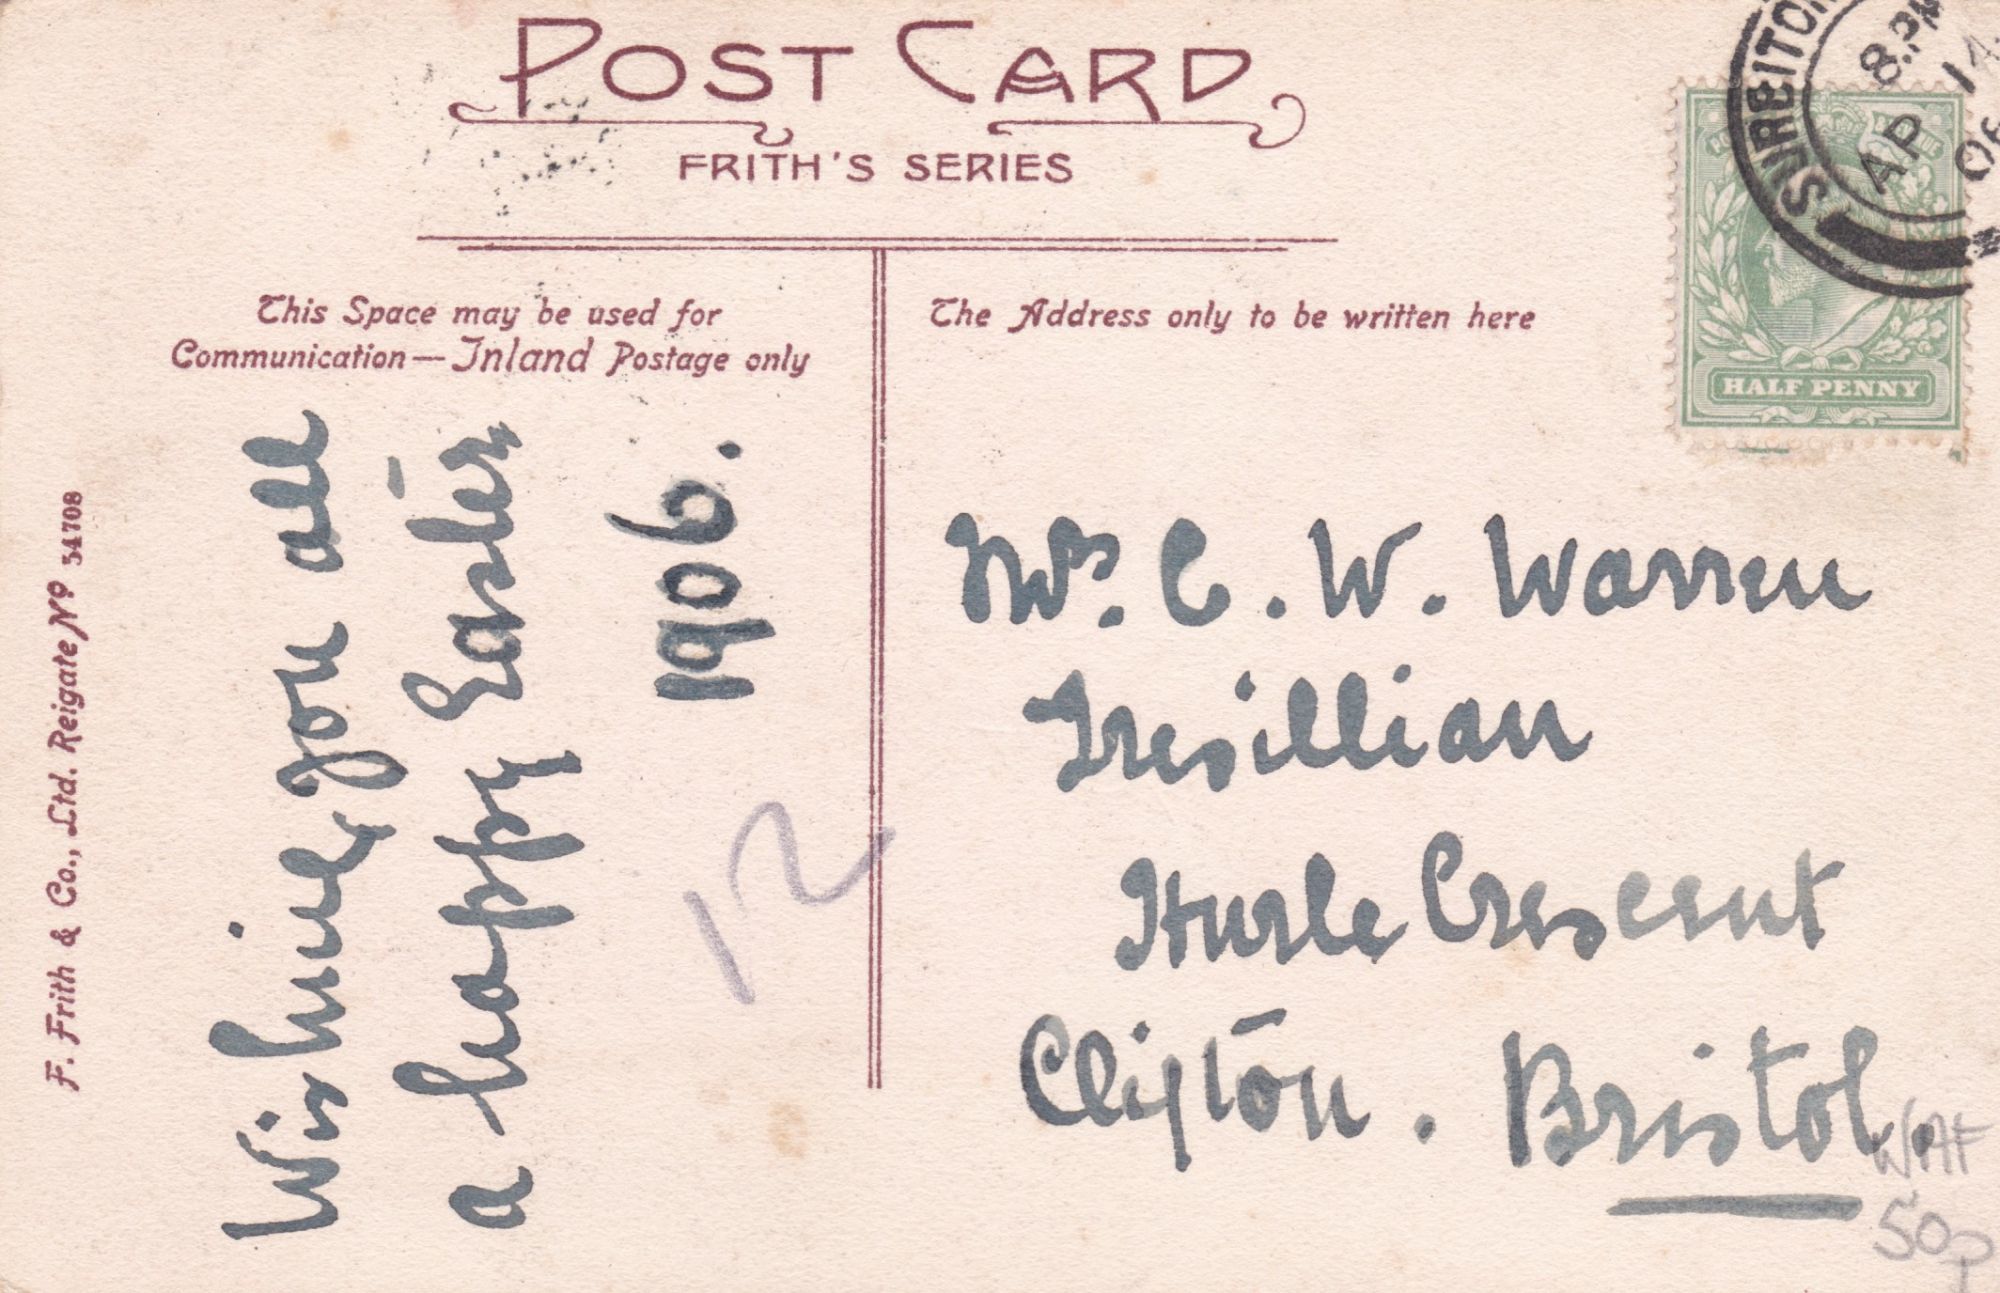 POST CARD
FRITH'S SERIES
This Space may be used for
Communication — Inland Postage only
The Address only to be written here
F. Frith & Co., Ltd. Reigate No 54708
Wishing you all
a happy Easter
1906.
12
Mrs. C. W. Warren
Tresillian
Hurle Crescent
Clifton. Bristol.
50p
SURBITON
8. PM
AP 14
06
HALF PENNY